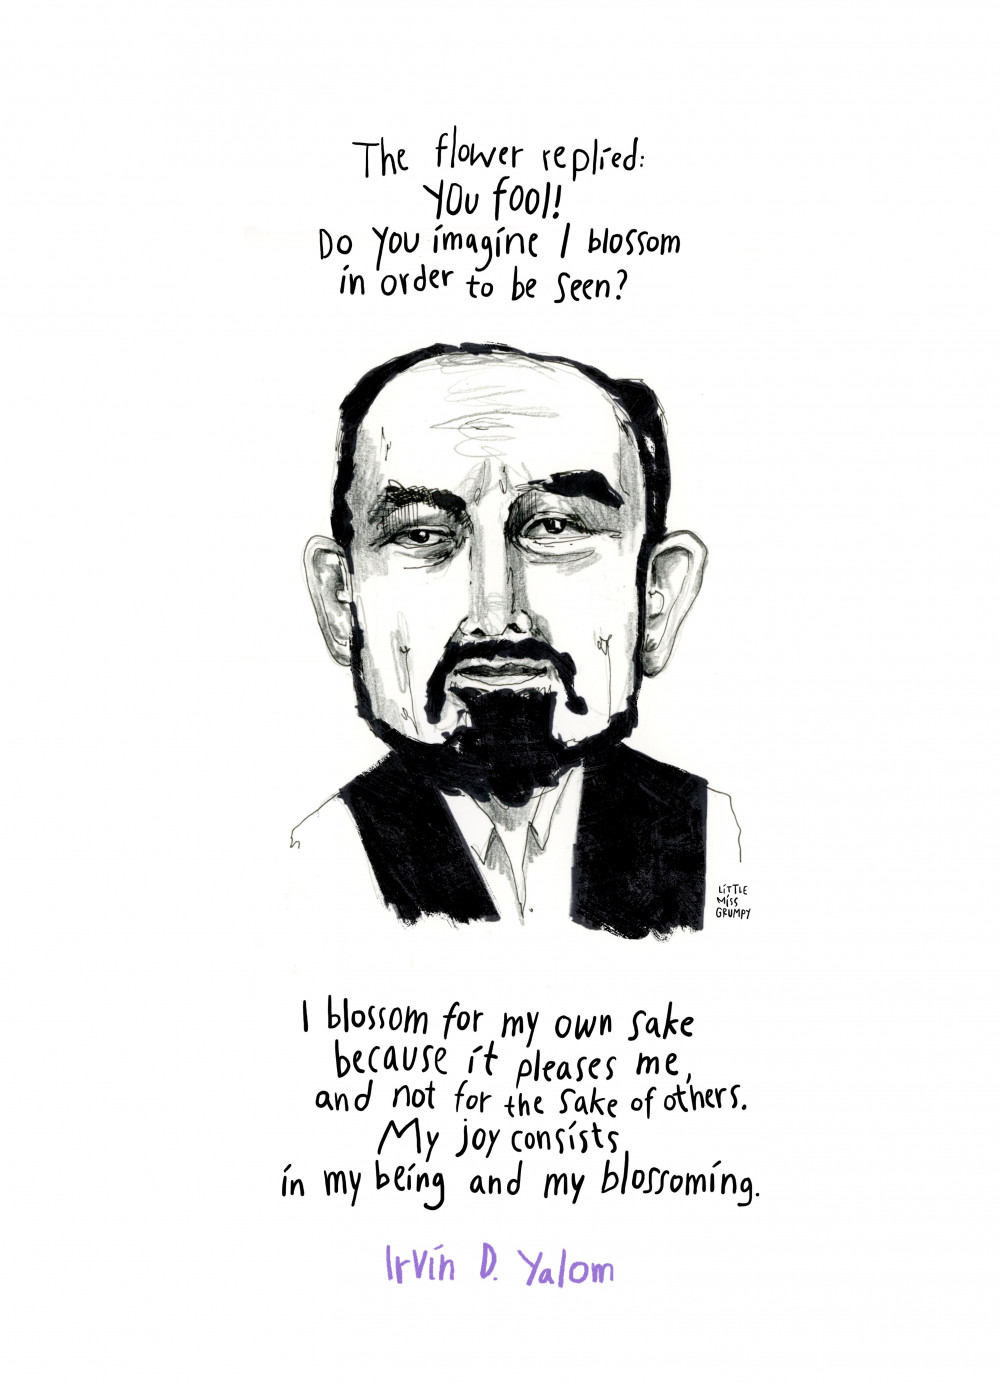 The flower replied:
YOU fool!
Do you imagine I blossom
in order to be seen?
LITTLE
MISS
GRUMPY
I blossom for my own sake
because it pleases me,
and not for the sake of others.
My joy consists
in my being and my blossoming.
Irvin D. Yalom